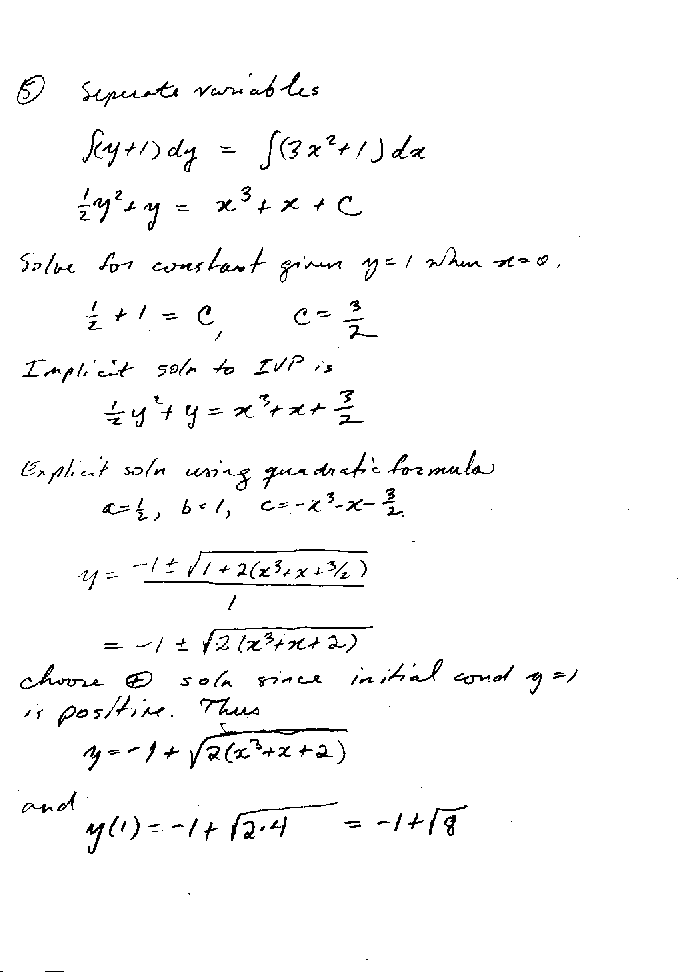 ⑤ Seperate variables
∫(y+1) dy = ∫(3x²+1) dx
½y² + y = x³ + x + C
Solve for constant given y=1 when x=0.
½ + 1 = C, C = 3/2
Implicit soln to IVP is
½y² + y = x³ + x + 3/2
Explicit soln using quadratic formula
a=½, b=1, c=-x³-x-3/2.
y = (-1 ± √(1+2(x³+x+3/2)))/1
= -1 ± √(2(x³+x+2))
choose ⊕ soln since initial cond y=1
is positive. Thus
y = -1 + √(2(x³+x+2))
and
y(1) = -1 + √(2·4) = -1+√8